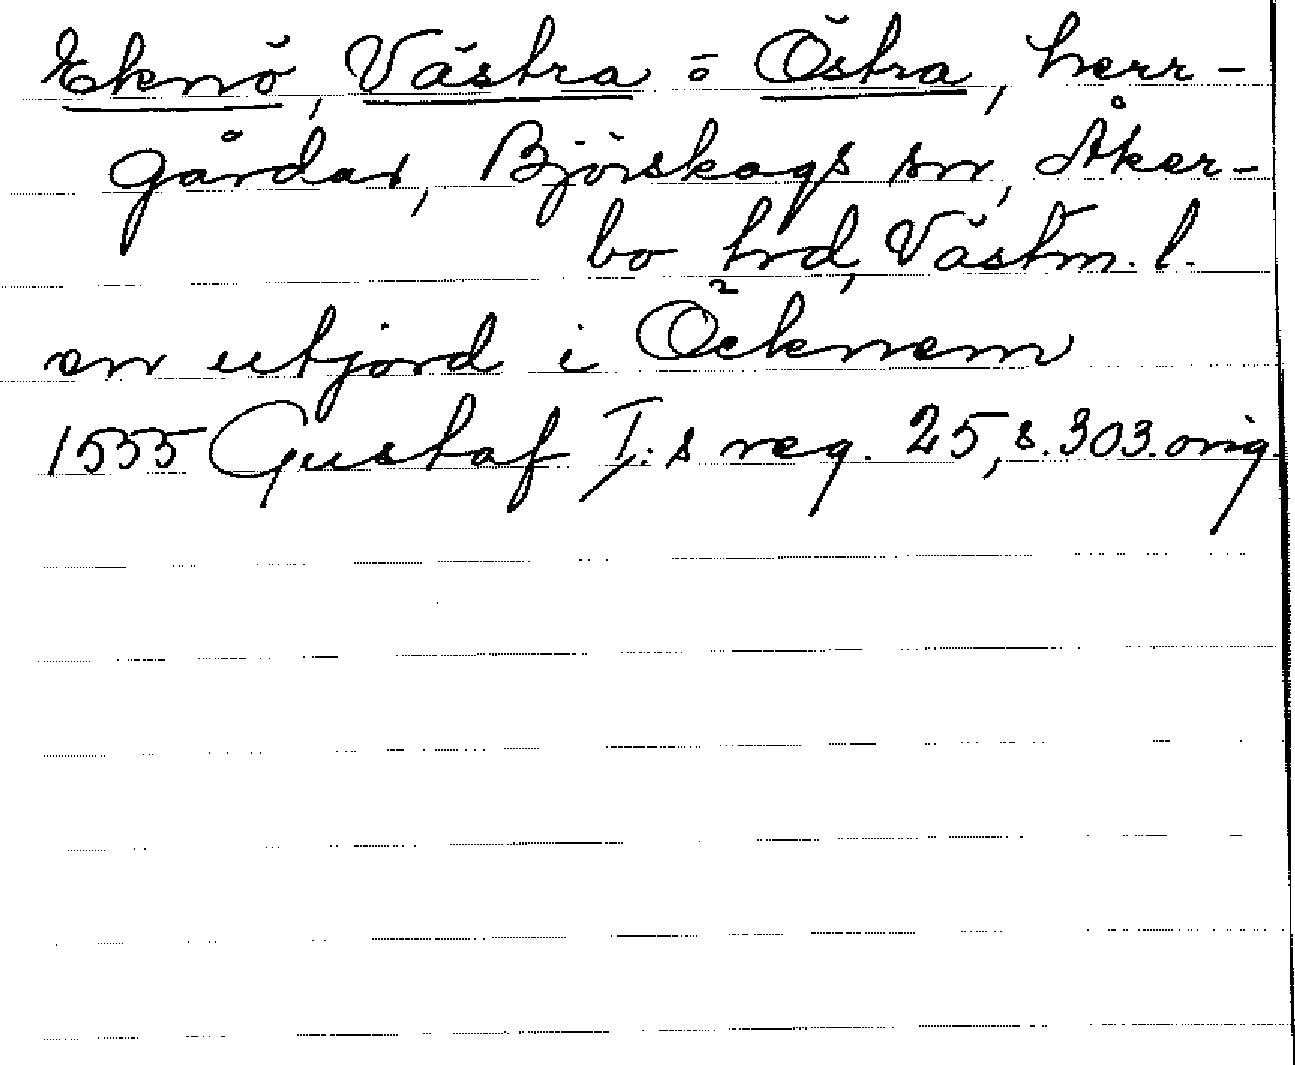 Eknö, Västra o Östra, herr-
gårdar, Björskogs sn, Åker-
bo hrd, Västm. l.
en utjord i Öcknem
1555 Gustaf I:s reg. 25, s. 303. orig.